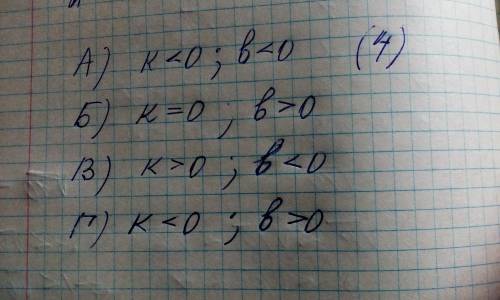 А) к<0 ; в<0 (4)
Б) к=0 ; в>0
В) к>0 ; в<0
Г) к<0 ; в>0